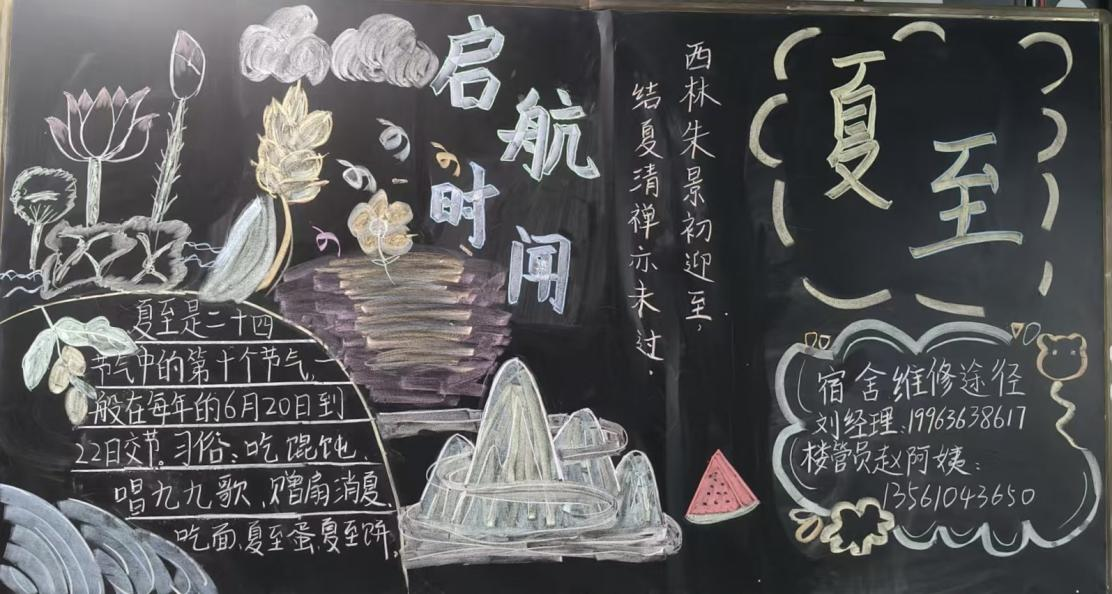 启航时闻
夏至是二十四
节气中的第十个节气,一
般在每年的6月20日到
22日交节。习俗:吃馄饨、
唱九九歌、赠扇消夏、
吃面、夏至蛋、夏至饼。
西林朱景初迎至,
结夏清禅亦未过.
夏至
宿舍维修途径
刘经理:19963638617
楼管员赵阿姨:
13561043650